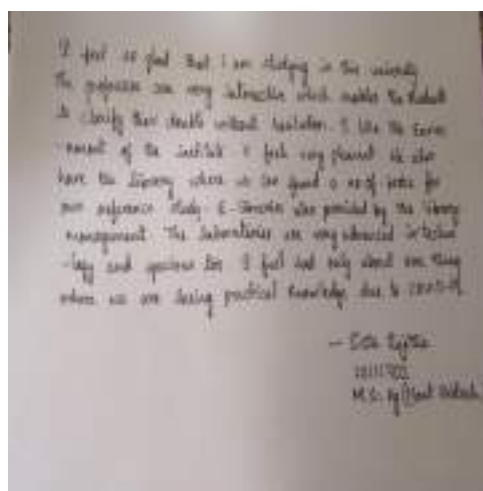 I feel so glad that I am studying in this university
The professors are very interactive which enables the students
to clarify their doubts without hesitation. I like the Enviro
-nment of the institute I feel very pleasant We also
have the library where we can spend a no of for
our reference study. E-Services was provided by the library
management. The laboratories are very advanced in techno
-logy and spacious too. I feel sad only about one thing
where we are losing practical knowledge due to COVID-19
M.Sc. Ag